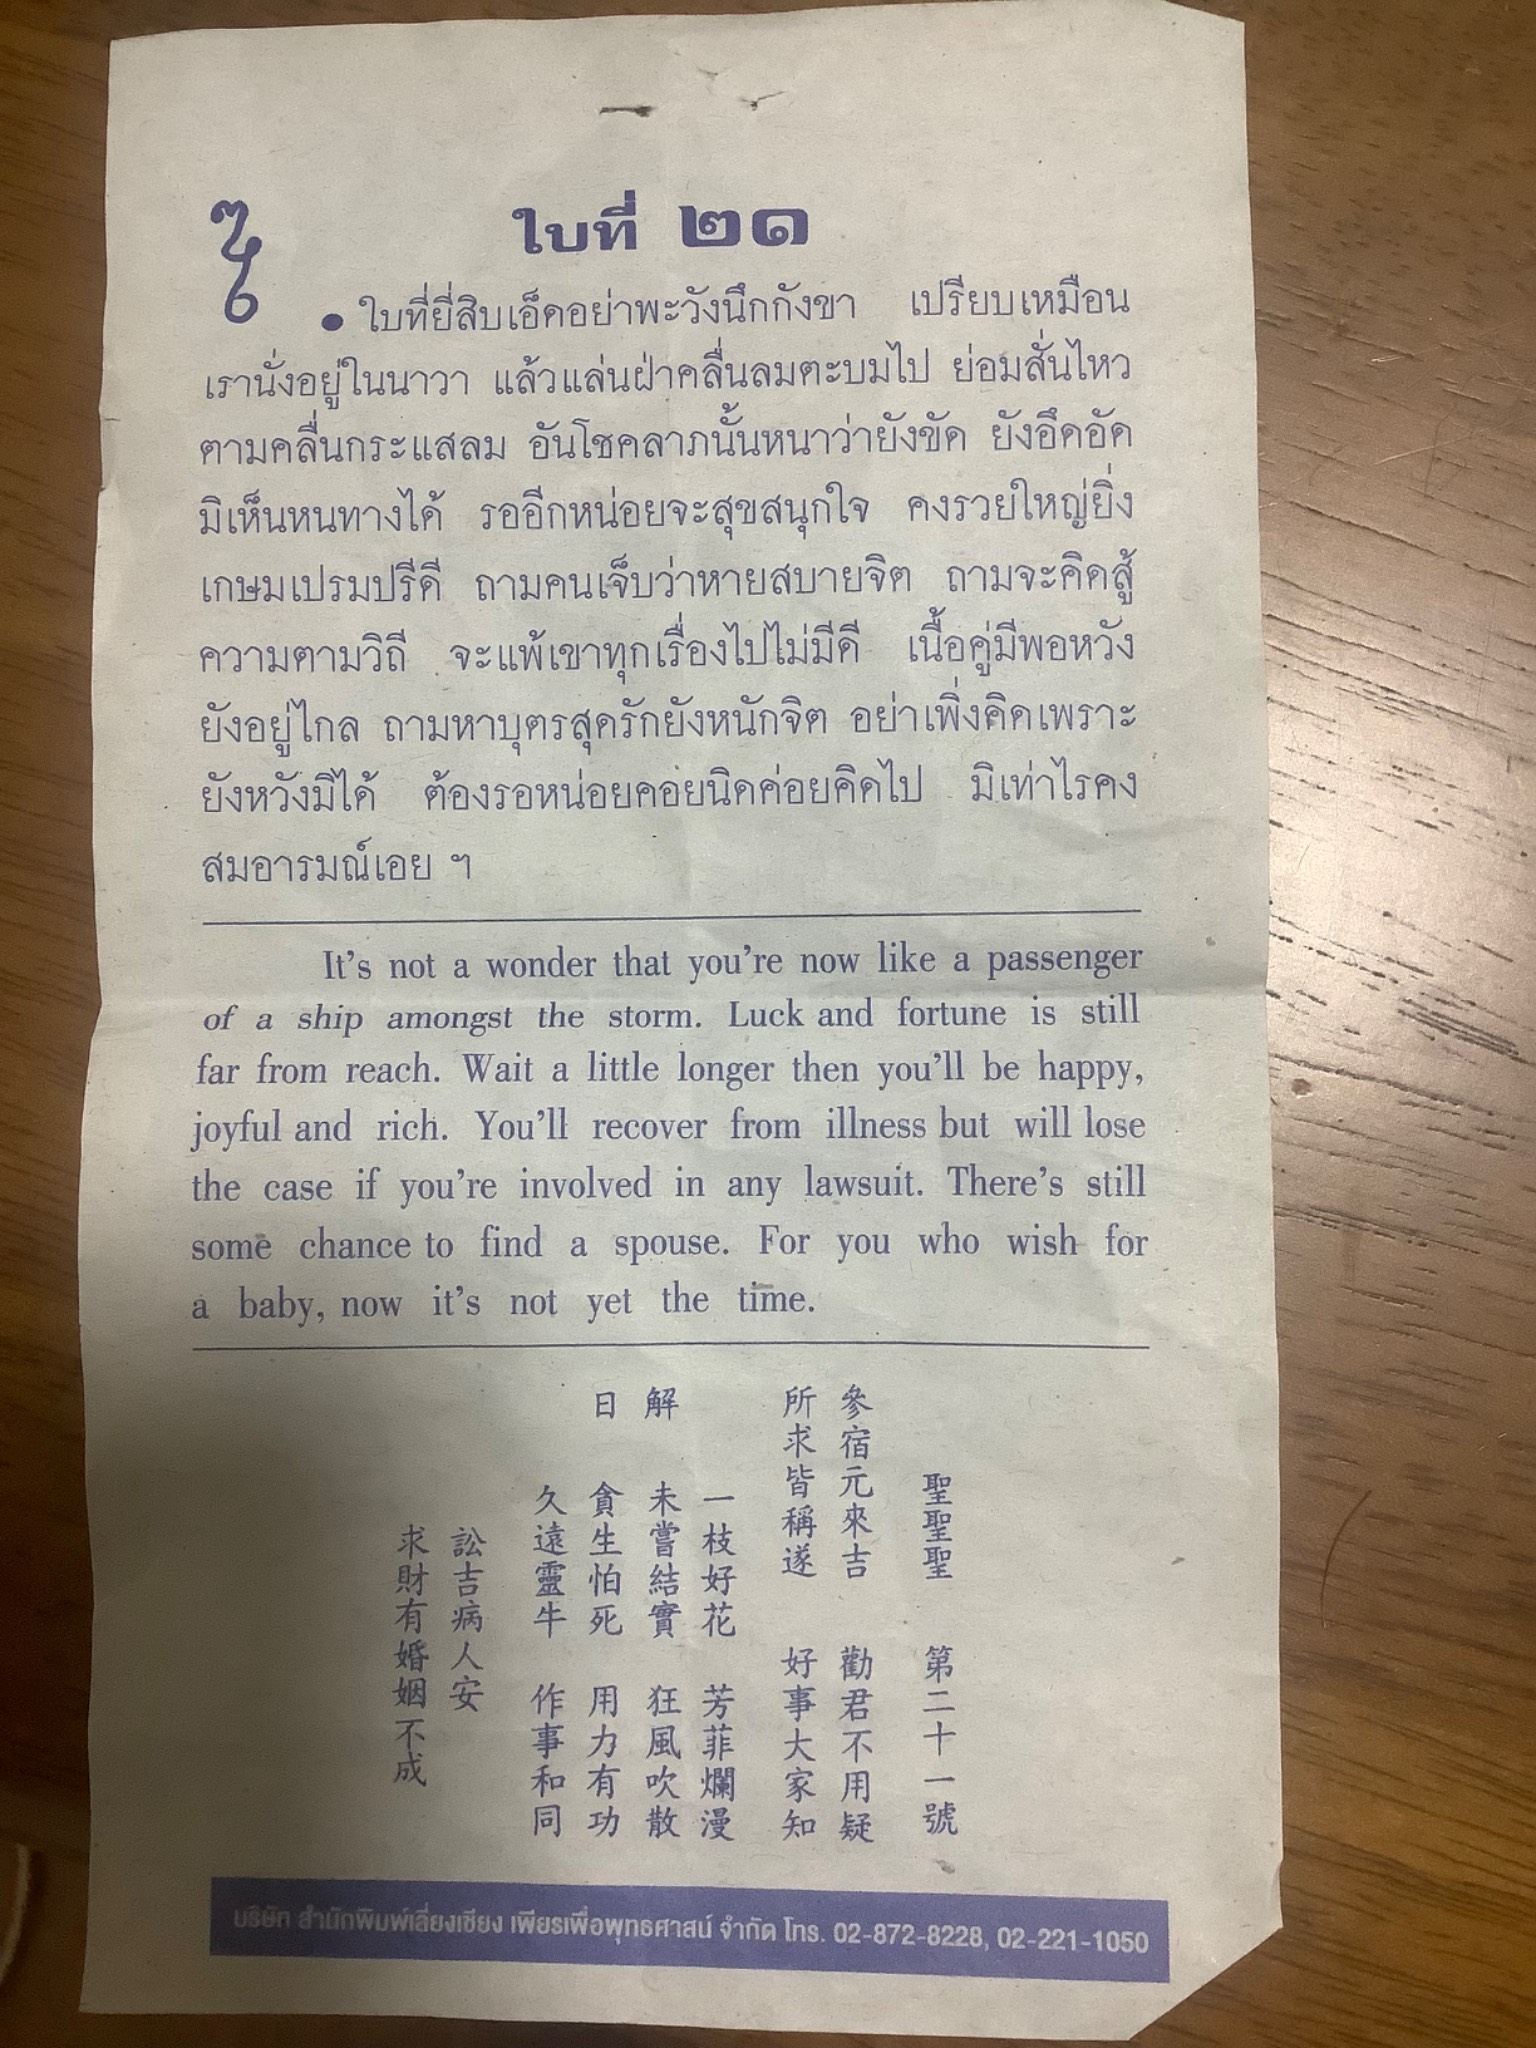 ใบที่ ๒๑
● ใบที่ยี่สิบเอ็ดอย่าพะวังนึกกังขา เปรียบเหมือน
เรานั่งอยู่ในนาวา แล้วแล่นฝ่าคลื่นลมตะบมไป ย่อมสั่นไหว
ตามคลื่นกระแสลม อันโชคลาภนั้นหนาว่ายังขัด ยังอึดอัด
มิเห็นหนทางได้ รออีกหน่อยจะสุขสนุกใจ คงรวยใหญ่ยิ่ง
เกษมเปรมปรีดี ถามคนเจ็บว่าหายสบายจิต ถามจะคิดสู้
ความตามวิถี จะแพ้เขาทุกเรื่องไปไม่มีดี เนื้อคู่มีพอหวัง
ยังอยู่ไกล ถามหาบุตรสุดรักยังหนักจิต อย่าเพิ่งคิดเพราะ
ยังหวังมิได้ ต้องรอหน่อยคอยนิดค่อยคิดไป มิเท่าไรคง
สมอารมณ์เอย ฯ
It's not a wonder that you're now like a passenger
of a ship amongst the storm. Luck and fortune is still
far from reach. Wait a little longer then you'll be happy,
joyful and rich. You'll recover from illness but will lose
the case if you're involved in any lawsuit. There's still
some chance to find a spouse. For you who wish for
a baby, now it's not yet the time.
聖聖聖 第二十一號
參宿元來吉 勸君不用疑
所求皆稱遂 好事大家知
一枝好花 芳菲爛漫
解 未嘗結實 狂風吹散
日 貪生怕死 用力有功
久遠靈牛 作事和同
訟吉病人安
求財有婚姻不成
บริษัท สำนักพิมพ์เลี่ยงเชียง เพียรเพื่อพุทธศาสน์ จำกัด โทร. 02-872-8228, 02-221-1050